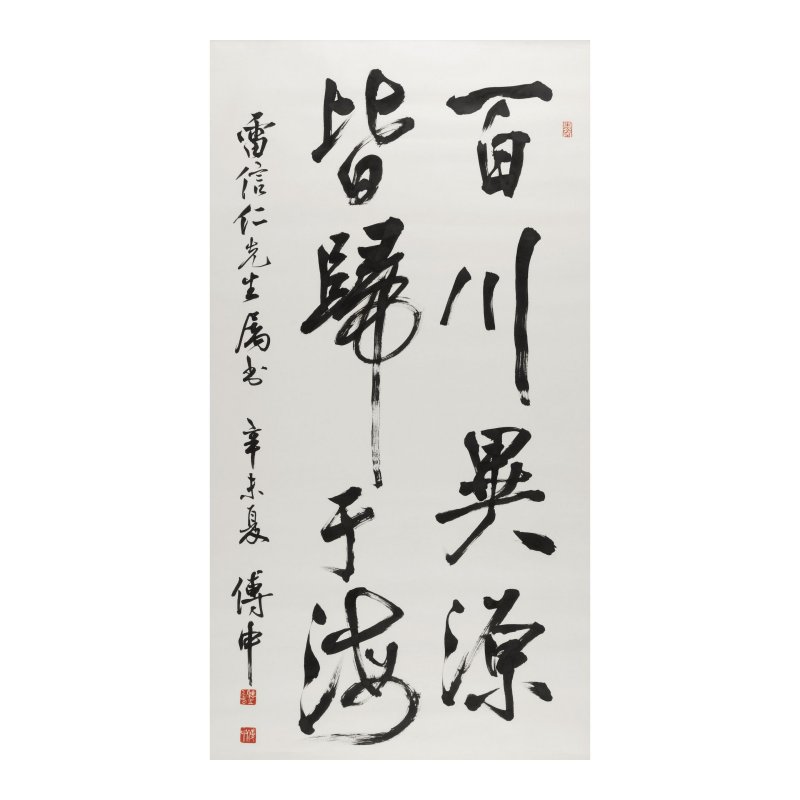 百川異源
皆歸于海
雷信仁先生属书 辛未夏 傅申